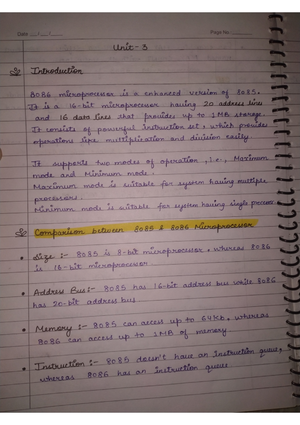 Date
Page No.
Unit - 3
Introduction
8086 microprocessor is a enhanced version of 8085.
It is a 16-bit microprocessor having 20 address lines
and 16 data lines that provides up to 1MB storage.
It consists of powerful instruction set, which provides
operations like multiplication and division easily
It supports two modes of operation, i.e., Maximum
mode and Minimum mode.
Maximum mode is suitable for system having multiple
processors.
Minimum mode is suitable for system having single processor.
Comparison between 8085 & 8086 Microprocessor
Size :- 8085 is 8-bit microprocessor, whereas 8086
is 16-bit microprocessor
Address Bus:- 8085 has 16-bit address bus while 8086
has 20-bit address bus
Memory :- 8085 can access up to 64Kb, whereas
8086 can access up to 1MB of memory
Instruction :- 8085 doesn't have an instruction queue,
whereas 8086 has an instruction queue